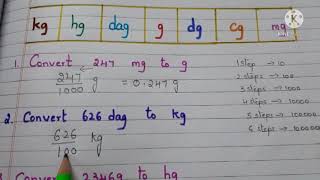 kg hg dag g dg cg mg
1. Convert 247 mg to g
247
1000 g = 0.247g
2. Convert 626 dag to kg
626
100 kg
3. Convert 2346g to hg
1 step → 10
2 steps → 100
3 steps → 1000
4 steps → 10000
5 steps → 100000
6 steps → 1000000